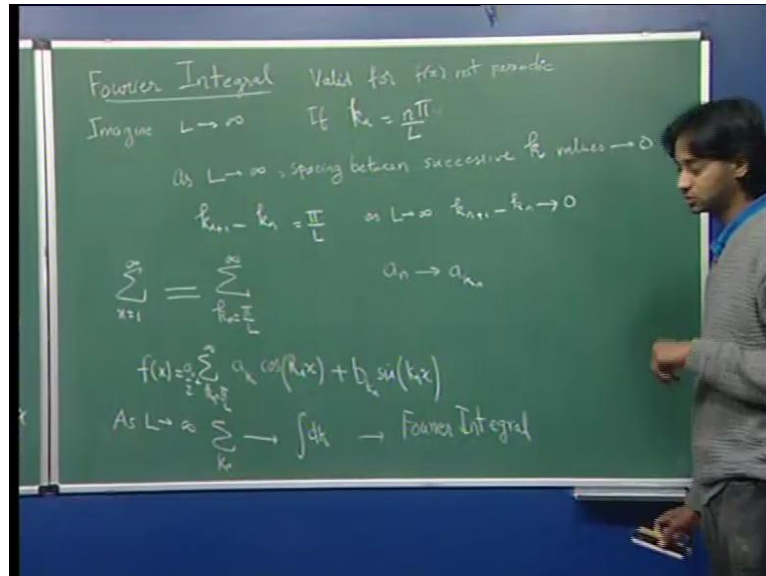 Fourier Integral Valid for f(x) not periodic
Imagine L → ∞ If kₙ = nπ/L
As L → ∞, spacing between successive k values → 0
kₙ₊₁ - kₙ = π/L as L → ∞ kₙ₊₁ - kₙ → 0
∑_{n=1}^{∞} = ∑_{kₙ=π/L}^{∞} aₙ → a_{kₙ}
f(x) = a₀/2 + ∑_{kₙ=π/L}^{∞} a_{k} cos(kₙx) + b_{kₙ} sin(kₙx)
As L → ∞ ∑_{kₙ} → ∫dk → Fourier Integral